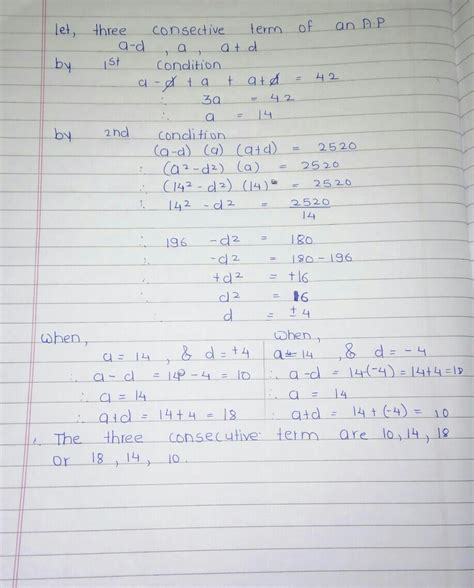 let, three consective term of an A.P
a-d , a , a+d
by 1st condition
a - d + a + a+d = 42
∴ 3a = 42
∴ a = 14
by 2nd condition
(a-d) (a) (a+d) = 2520
∴ (a² - d²) (a) = 2520
∴ (14² - d²) (14) = 2520
∴ 14² - d² = 2520/14
∴ 196 - d² = 180
∴ -d² = 180 - 196
∴ +d² = +16
d² = 16
d = ± 4
when,
a = 14 , & d = +4
∴ a - d = 14 - 4 = 10
∴ a = 14
∴ a+d = 14 + 4 = 18
when,
a = 14 , & d = - 4
∴ a-d = 14(-4) = 14+4 = 18
∴ a = 14
∴ a+d = 14 + (-4) = 10
∴ The three consecutive term are 10, 14, 18
or 18 , 14 , 10.